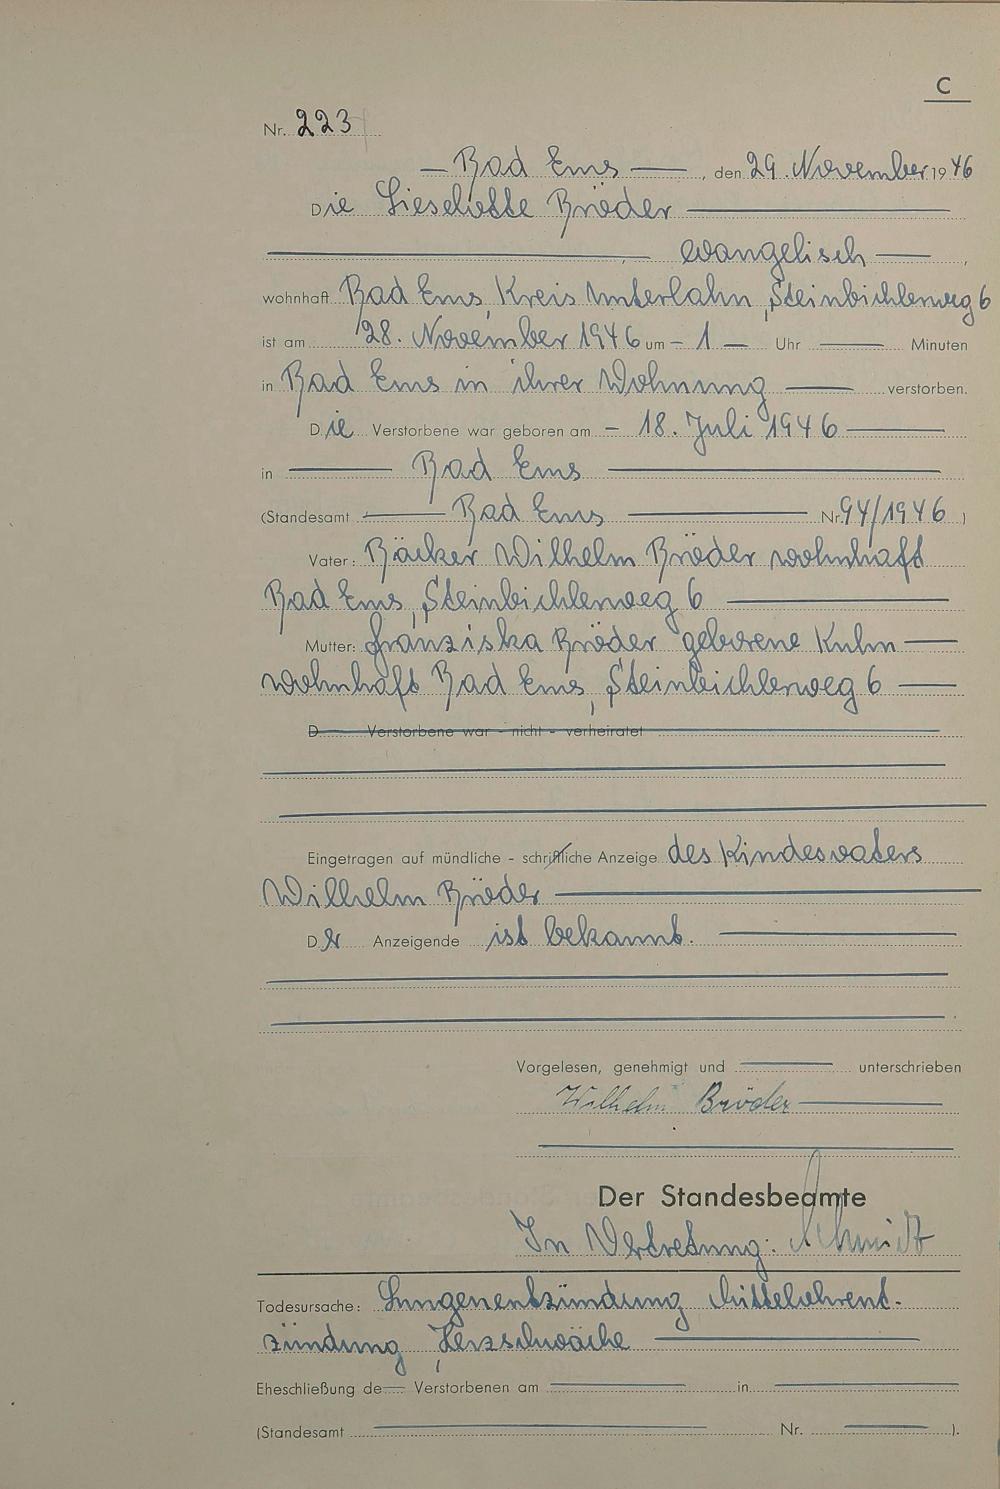 C
Nr. 223
— Bad Ems —, den 29. November 1946
Die Lieselotte Bröder —
—, evangelisch —,
wohnhaft Bad Ems, Kreis Unterlahn, Steinbichlerweg 6
ist am 28. November 1946 um – 1 — Uhr — Minuten
in Bad Ems in ihrer Wohnung — verstorben.
Die Verstorbene war geboren am – 18. Juli 1946 —
in — Bad Ems —
(Standesamt — Bad Ems — Nr. 94/1946)
Vater: Bäcker Wilhelm Bröder wohnhaft
Bad Ems, Steinbichlerweg 6 —
Mutter: Franziska Bröder geborene Kuhn —
wohnhaft Bad Ems, Steinbichlerweg 6 —
D— Verstorbene war – nicht – verheiratet
Eingetragen auf mündliche – schriftliche Anzeige des Kindesvaters
Wilhelm Bröder —
Der Anzeigende ist bekannt. —
Vorgelesen, genehmigt und — unterschrieben
Wilhelm Bröder —
Der Standesbeamte
In Vertretung: Schmidt
Todesursache: Lungenentzündung Mittelohrent-
zündung, Herzschwäche —
Eheschließung de— Verstorbenen am — in —
(Standesamt — Nr. — ).